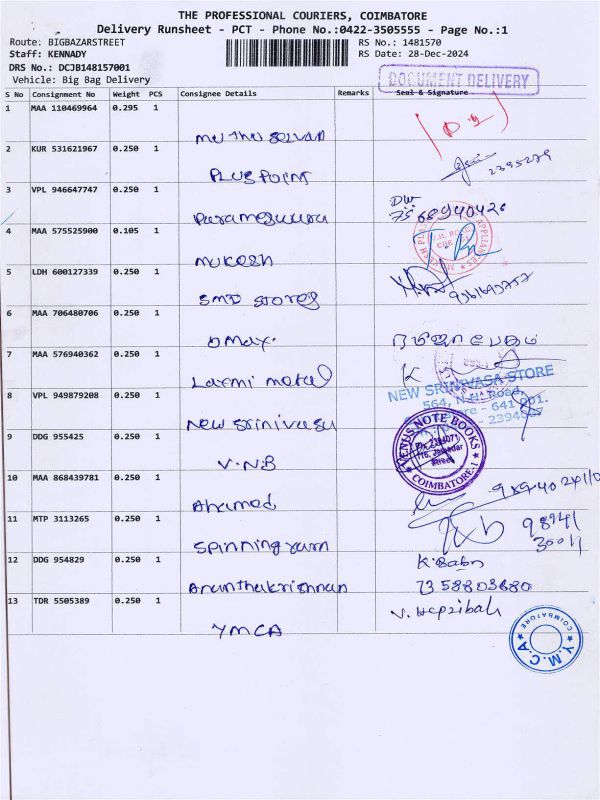 THE PROFESSIONAL COURIERS, COIMBATORE
Delivery Runsheet - PCT - Phone No.:0422-3505555 - Page No.:1
Route: BIGBAZARSTREET
RS No.: 1481570
Staff: KENNADY
RS Date: 28-Dec-2024
DRS No.: DCJB148157001
Vehicle: Big Bag Delivery
DOCUMENT DELIVERY
S No Consignment No Weight PCS Consignee Details Remarks Seal & Signature
1 MAA 110469964 0.295 1
muthu selvan
2 KUR 531621967 0.250 1
PLUS POINT
2395279
3 VPL 946647747 0.250 1
Parameswara
75 68940420
4 MAA 575525900 0.105 1
mukesh
5 LDH 600127339 0.250 1
SMD stores
6 MAA 706480706 0.250 1
Dmax.
7 MAA 576940362 0.250 1
Laxmi metal
NEW SRINIVASA STORE
564, N.H. Road,
8 VPL 949879208 0.250 1
- 641 001.
New srinivasa
9 DDG 955425 0.250 1
VENUS NOTE BOOKS
Ph: 2394071
COIMBATORE-1
V.N.B
10 MAA 868439781 0.250 1
Ahamed
11 MTP 3113265 0.250 1
98941
30011
spinning yarn
12 DDG 954829 0.250 1
K. Babu
Ananthakrishnan
7358803880
13 TDR 5505389 0.250 1
V. Hepzibah
YMCA
Y.M.C.A
COIMBATORE